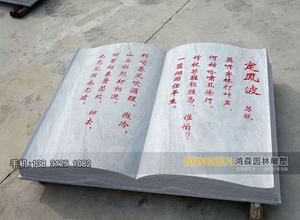 定风波 苏轼
莫听穿林打叶声,
何妨吟啸且徐行。
竹杖芒鞋轻胜马,谁怕?
一蓑烟雨任平生。
料峭春风吹酒醒,微冷,
山头斜照却相迎。
回首向来萧瑟处,归去,
也无风雨也无晴。
手机:138 3125 1082
HONGSEN 鸿森园林雕塑